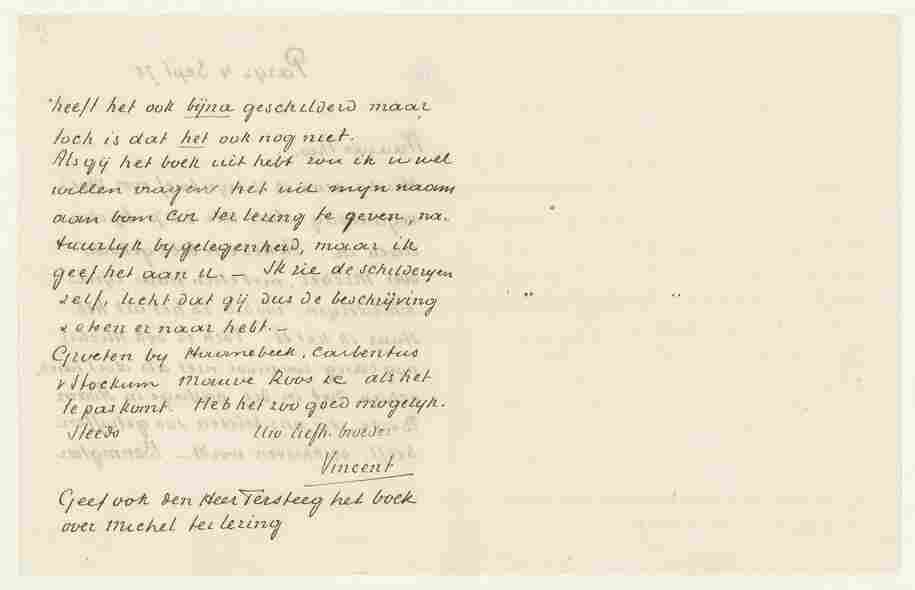 heeft het ook bijna geschilderd maar
toch is dat het ook nog niet.
Als gij het boek uit hebt zou ik u wel
willen vragen het uit mijn naam
aan oom Cor ter lezing te geven, na-
tuurlyk by gelegenheid, maar ik
geef het aan U. — Ik zie de schilderyen
zelf, licht dat gij dus de beschrijving
eens naar hebt. —
Groeten by Haanebeek, Carbentus
v Stockum Mauve Roos &c als het
te pas komt. Heb het zoo goed mogelyk.
Steeds Uw liefh. broeder
Vincent
Geef ook den Heer Tersteeg het boek
over Michel ter lezing